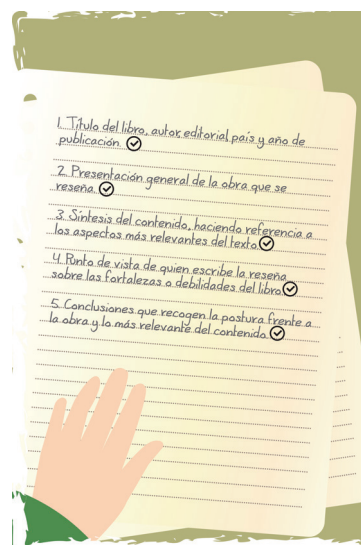 1. Título del libro, autor, editorial, país y año de
publicación.
2. Presentación general de la obra que se
reseña.
3. Síntesis del contenido, haciendo referencia a
los aspectos más relevantes del texto.
4. Punto de vista de quien escribe la reseña
sobre las fortalezas o debilidades del libro.
5. Conclusiones que recogen la postura frente a
la obra y lo más relevante del contenido.